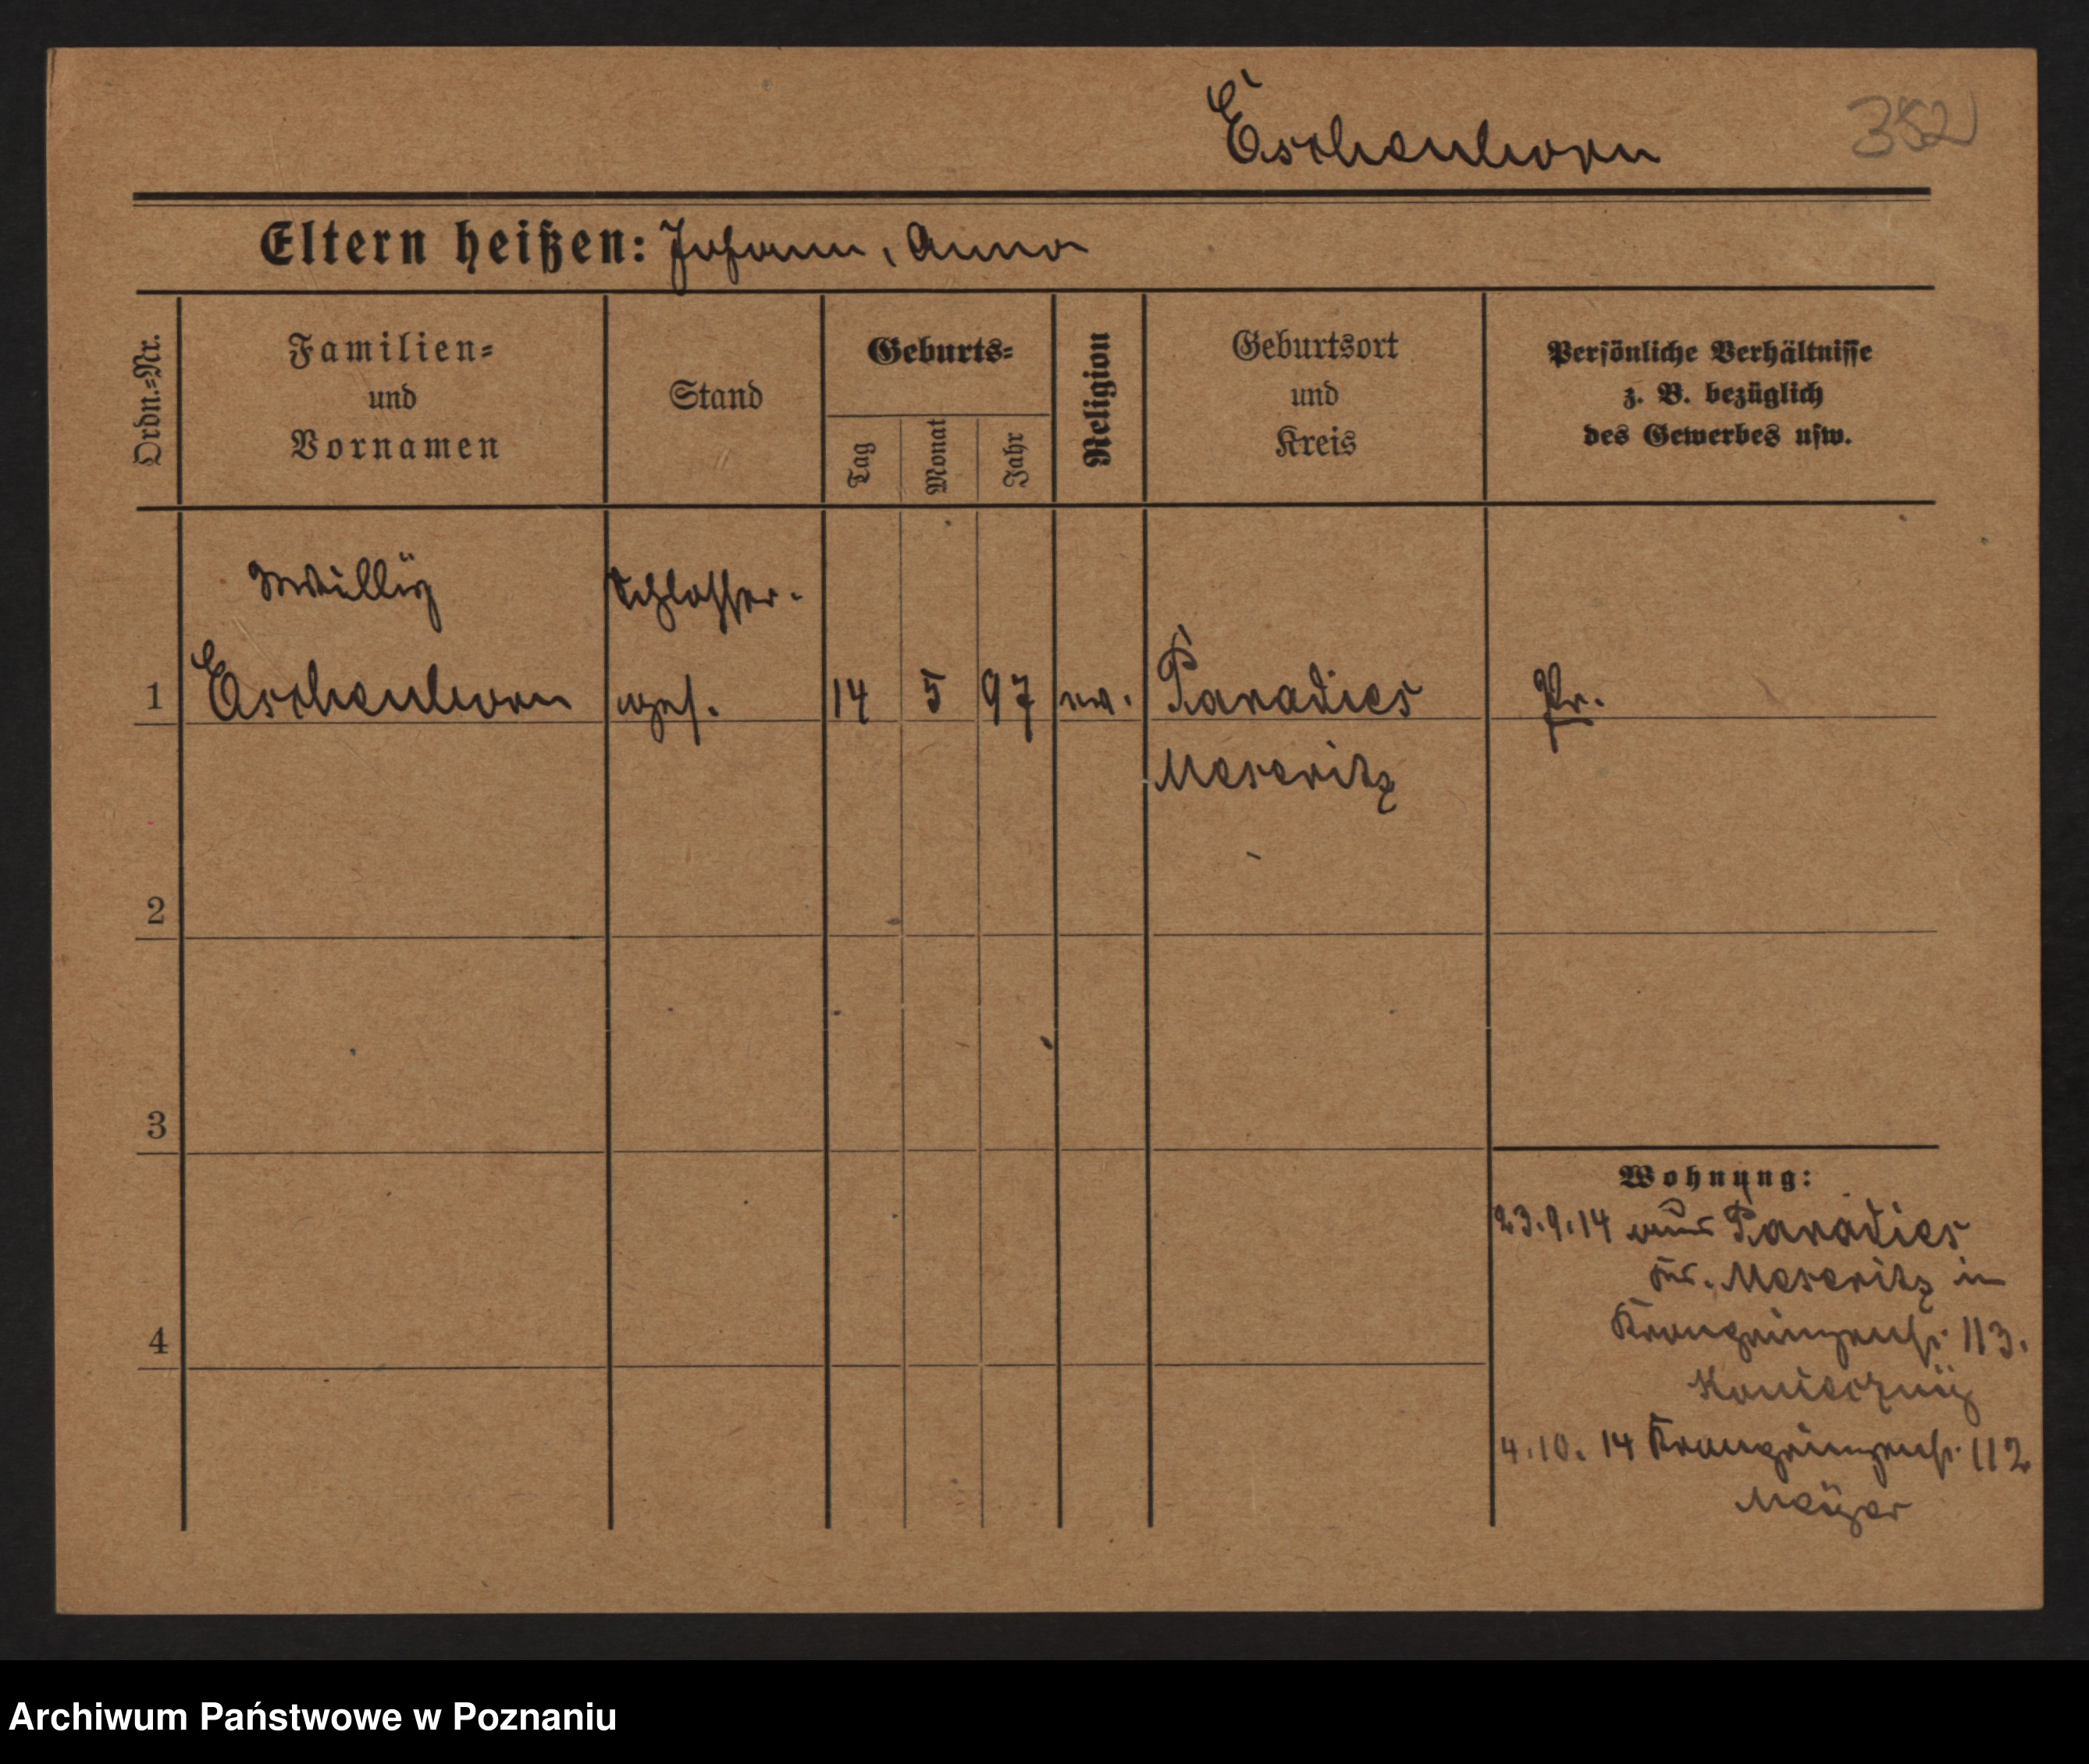 Eschenhorn
352
Eltern heißen: Johann, Anna
Ordn.=Nr.
Familien=
und
Vornamen
Stand
Geburts=
Tag
Monat
Jahr
Religion
Geburtsort
und
Kreis
Persönliche Verhältnisse
z. B. bezüglich
des Gewerbes usw.
Willy
Schlosser-
1 Eschenhorn ges. 14 5 97 ev. Paradies Pr.
Meseritz
2
3
4
Wohnung:
23.9.14 aus Paradies
Kr. Meseritz in
Kronprinzenstr. 113.
Konieczny
4.10.14 Kronprinzenstr. 112
Meyer
Archiwum Państwowe w Poznaniu